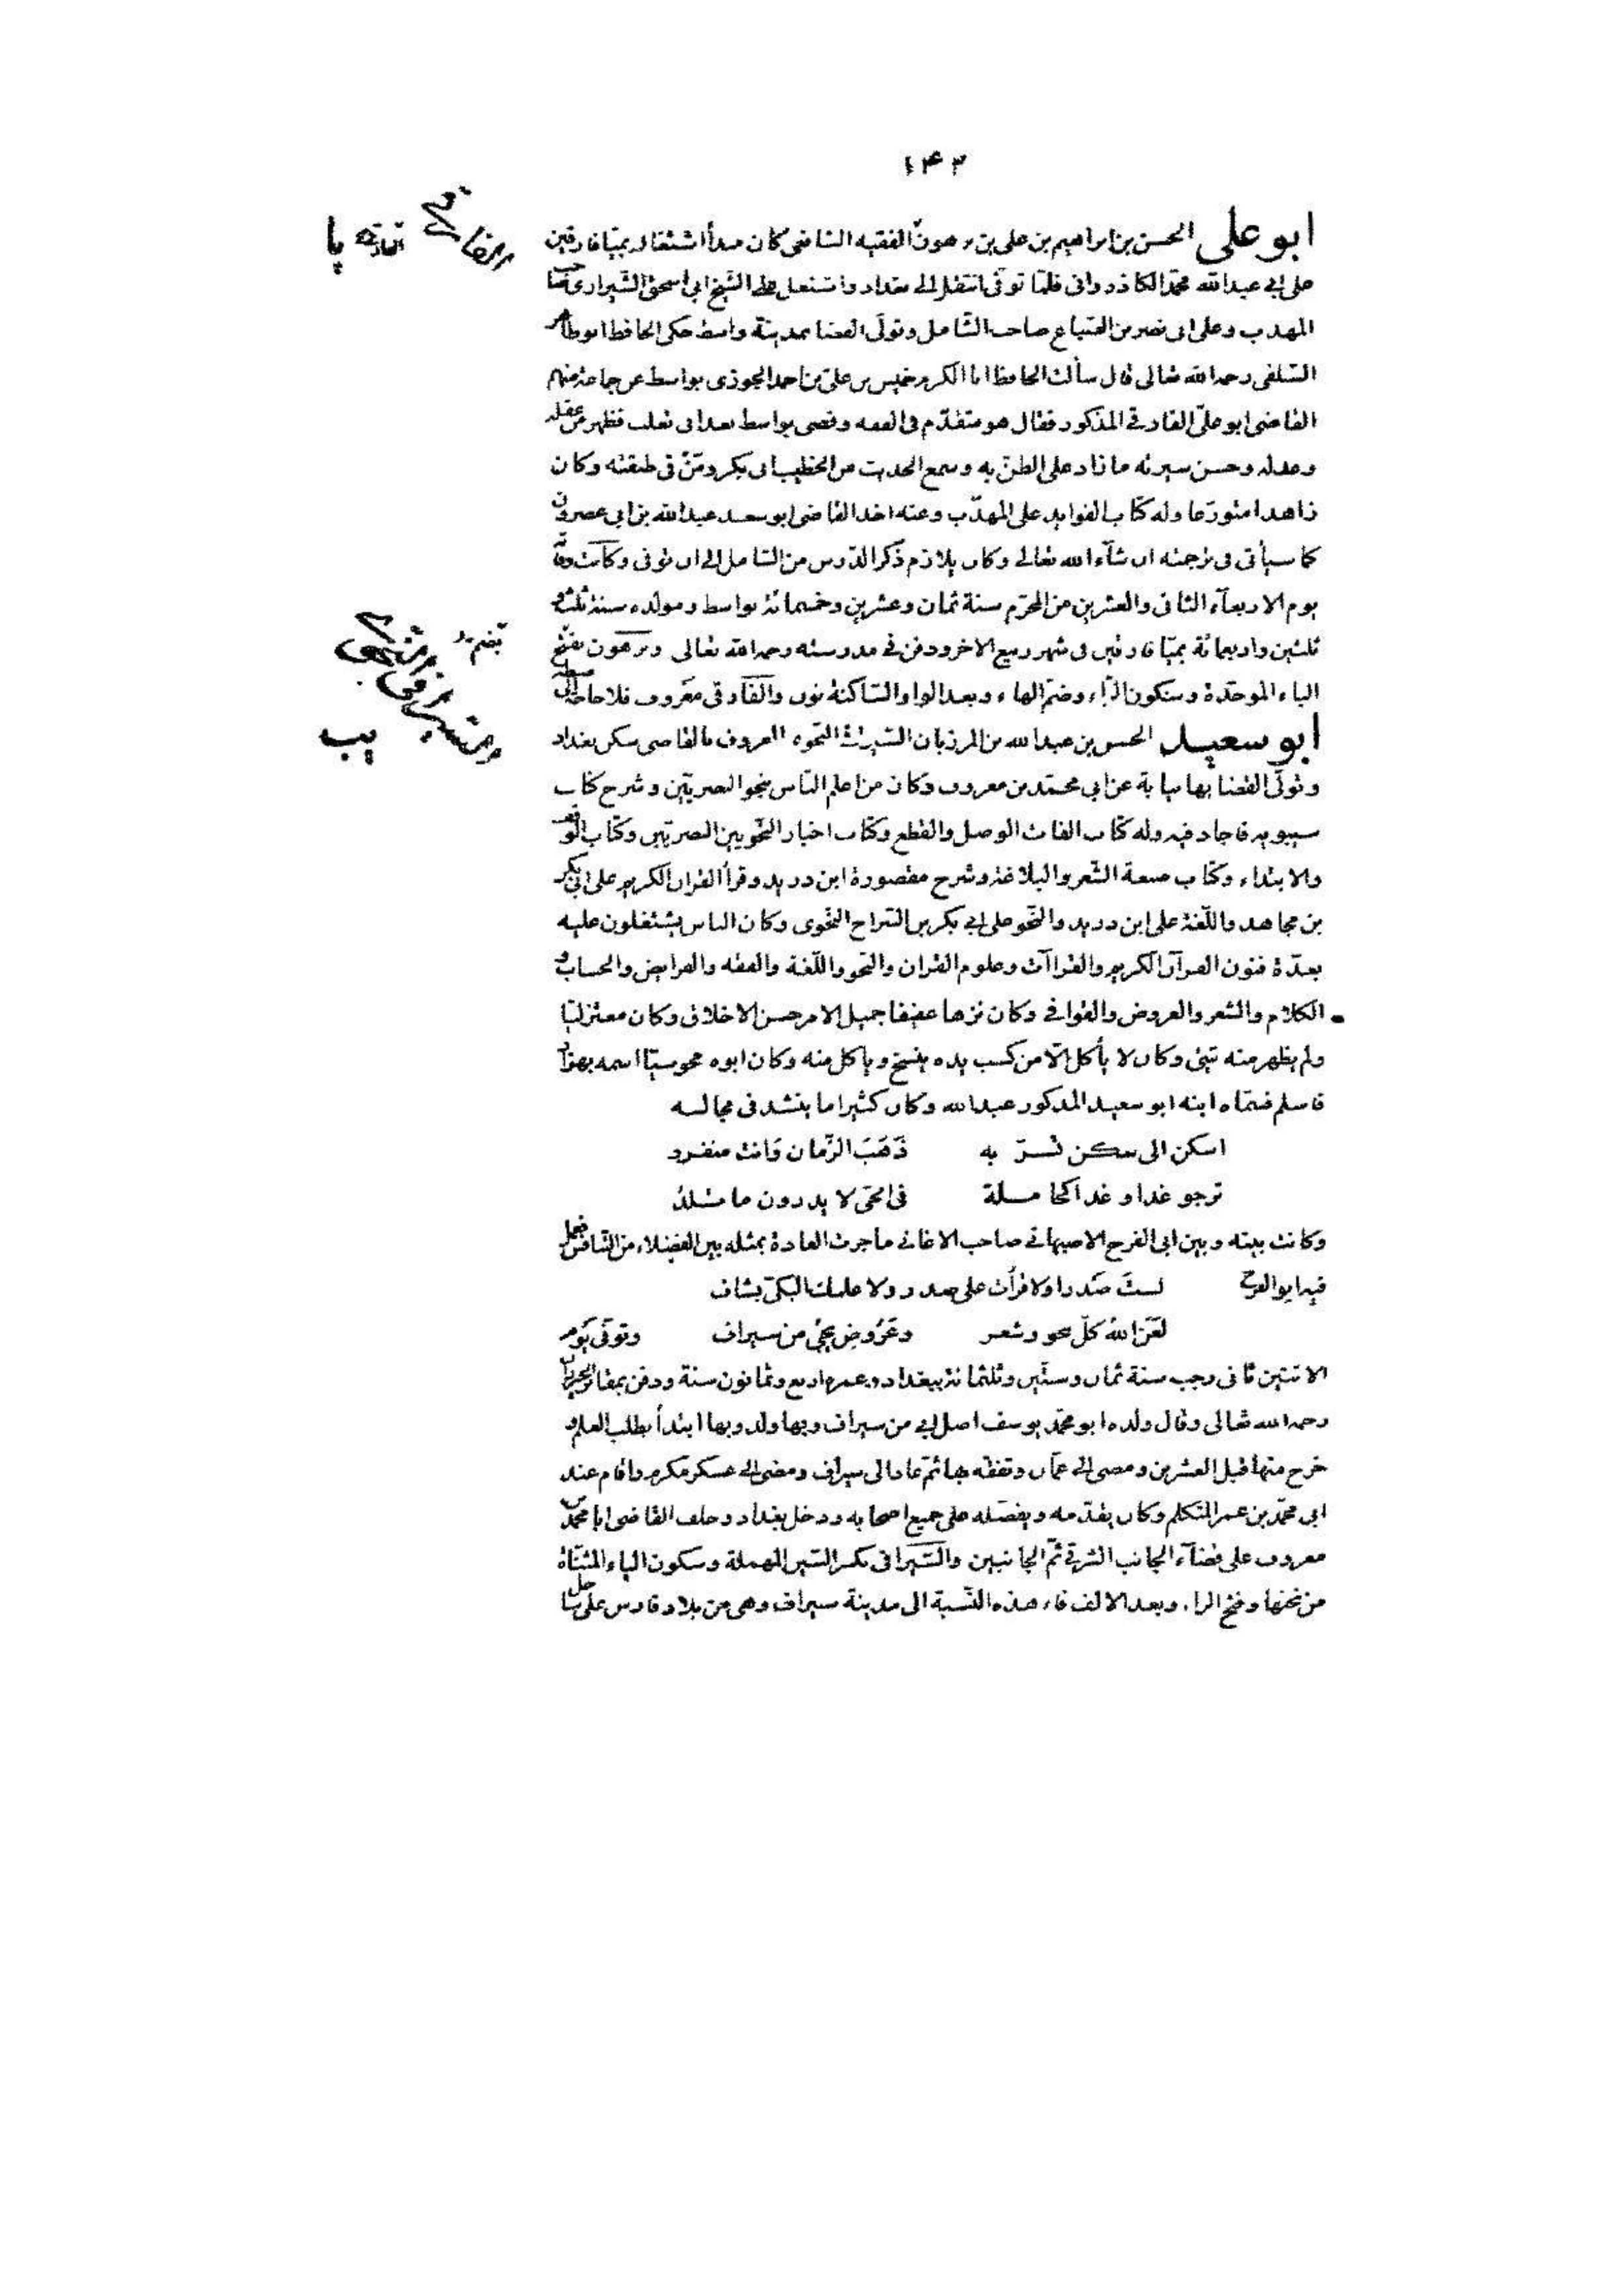 ١٤٣
ابو على الحسن بن ابراهيم بن على بن برهون الفقيه الشافعى كان مبدأ اشتغاله بميّافارقين
على ابى عبد الله محمّد الكازرونى فلمّا توفّى انتقل الى بغداد واشتغل على الشيخ ابى اسحق الشيرازى صاحب
المهذب وعلى ابى نصر بن الصّباغ صاحب الشّامل وتولّى القضا بمدينة واسط حكى الحافظ ابو طاهر
السّلفى رحمه الله تعالى قال سألت الحافظ ابا الكرم خميس بن علىّ بن احمد الجوزى بواسط عن جماعة منهم
القاضى ابو علىّ الفارقى المذكور فقال هو متقدّم فى الفقه وقضى بواسط بعد ابى تغلب فظهر من عقله
وعدله وحسن سيرته ما زاد على الظنّ به وسمع الحديث من الخطيب ابى بكر ومن فى طبقته وكان
زاهدا متورّعا وله كتاب الفوايد على المهذّب وعنه اخذ القاضى ابو سعد عبد الله بن ابى عصرون
كما سيأتى فى ترجمته ان شآء الله تعالى وكان يلازم ذكر الدّرس من الشامل الى ان توفى وكانت وفاته
يوم الاربعآء الثانى والعشرين من المحرّم سنة ثمان وعشرين وخمسمائة بواسط ومولده سنة ثلث و
ثلثين واربعمائة بميّافارقين فى شهر ربيع الاخر ودفن فى مدرسته رحمه الله تعالى وبرهون بفتح
الباء الموحّدة وسكون الرّاء وضمّ الهاء وبعد الواو السّاكنة نون والفارقى معروف فلا حاجة الى ضبطه
ابو سعيد الحسن بن عبد الله بن المرزبان السّيرافى النّحوى المعروف بالقاضى سكن بغداد
وتولّى القضا بها نيابة عن ابى محمّد بن معروف وكان من اعلم النّاس بنحو البصريّين وشرح كتاب
سيبويه فاجاد فيه وله كتاب الفات الوصل والقطع وكتاب اخبار النّحويين البصريّين وكتاب الوقف
والابتداء وكتاب صنعة الشّعر والبلاغة وشرح مقصورة ابن دريد وقرأ القران الكريم على ابى بكر
بن مجاهد واللّغة على ابن دريد والنّحو على ابى بكر بن السّراج النّحوى وكان الناس يشتغلون عليه
بعدّة فنون القرآن الكريم والقراآت وعلوم القران والنّحو واللّغة والفقه والفرايض والحساب و
الكلام والشعر والعروض والقوافى وكان نزها عفيفا جميل الامر حسن الاخلاق وكان معتزليّا
ولم يظهر منه شئ وكان لا يأكل الّا من كسب يده ينسخ ويأكل منه وكان ابوه مجوسيّا اسمه بهزاد
فاسلم فسمّاه ابنه ابو سعيد المذكور عبد الله وكان كثيرا ما ينشد فى مجالسه
اسكن الى سكن تسرّ به ذَهَبَ الزّمان وَانت منفرد
ترجو غدا وغدا كحاملة فى الحىّ لا يدرون ما تلد
وكانت بينه وبين ابى الفرج الاصبهانى صاحب الاغانى ما جرت العادة بمثله بين الفضلاء من التنافس فعمل
فيه ابو الفرج لستَ صَدرا ولا قرأت على صدر ولا علمك البكىّ بشاف
لعَنَ اللهُ كلّ نحو وشعر وعَرُوضٍ يجئ من سيراف وتوفّى يَوم
الاثنين ثانى رجب سنة ثمان وستّين وثلثمائة ببغداد وعمره اربع وثمانون سنة ودفن بمقابر الخيزران
رحمه الله تعالى وقال ولده ابو محمّد يوسف اصل ابى من سيراف وبها ولد وبها ابتدأ بطلب العلم و
خرج منها قبل العشرين ومضى الى عمّان وتفقه بها ثمّ عاد الى سيراف ومضى الى عسكر مكرم واقام عند
ابى محمّد بن عمر المتكلم وكان يقدّمه ويفضّله على جميع اصحابه ودخل بغداد وخلف القاضى ابا محمّد بن
معروف على قضآء الجانب الشرقى ثمّ الجانبين والسّيرافى بكسر السّين المهملة وسكون الياء المثنّاة
من تحتها وفتح الراء وبعد الالف فاء هذه النّسبة الى مدينة سيراف وهى من بلاد فارس على ساحل